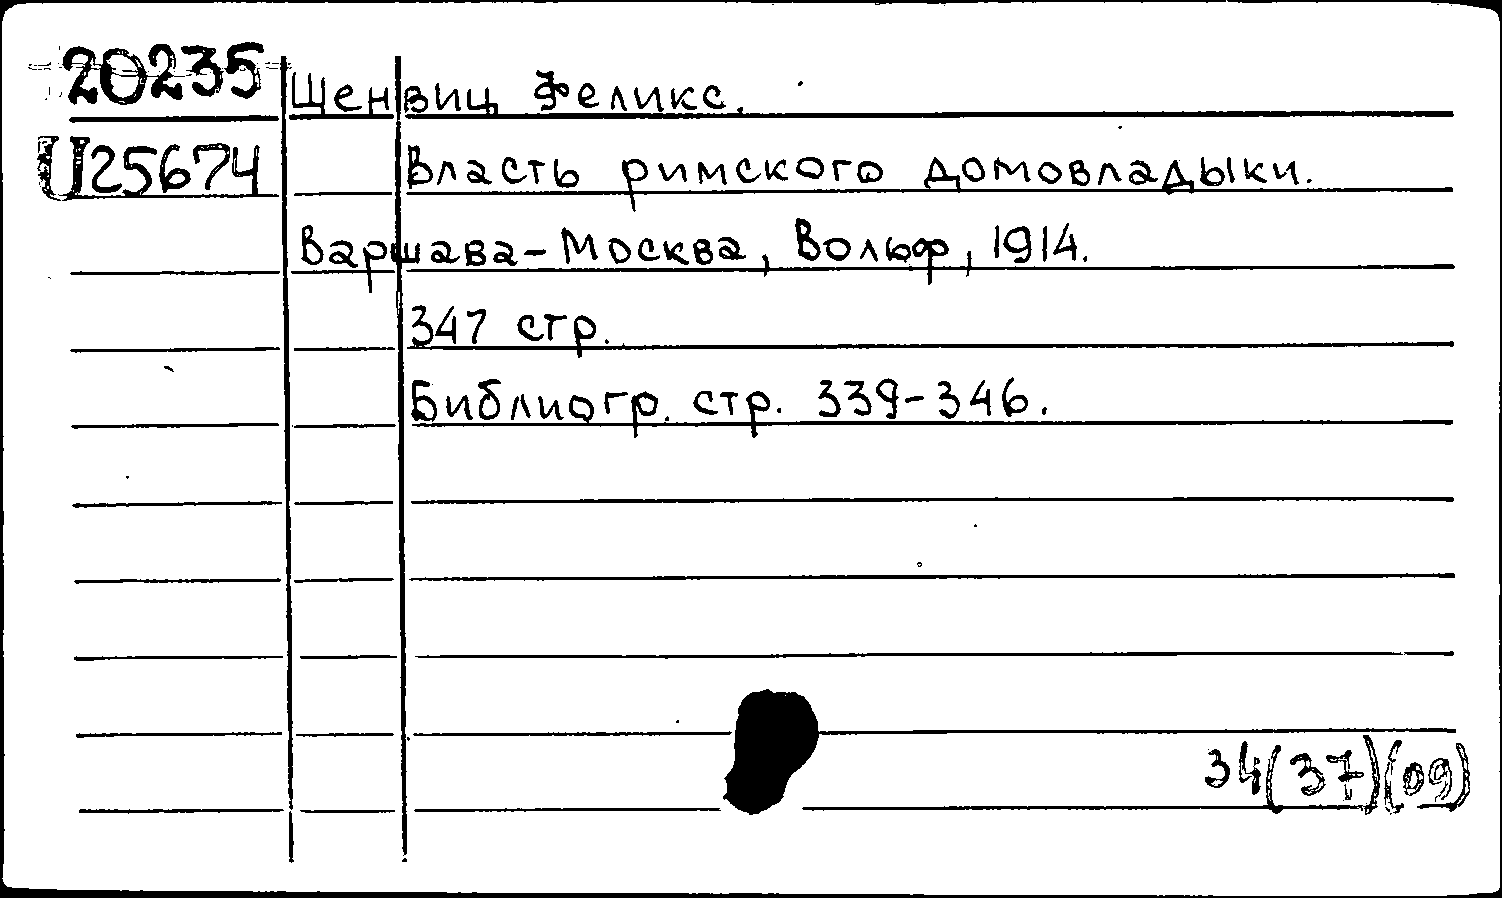 20235 Щенвиц Феликс.
U25674 Власть римского домовладыки.
Варшава-Москва, Вольф, 1914.
347 стр.
Библиогр. стр. 339-346.
34(37)(09)